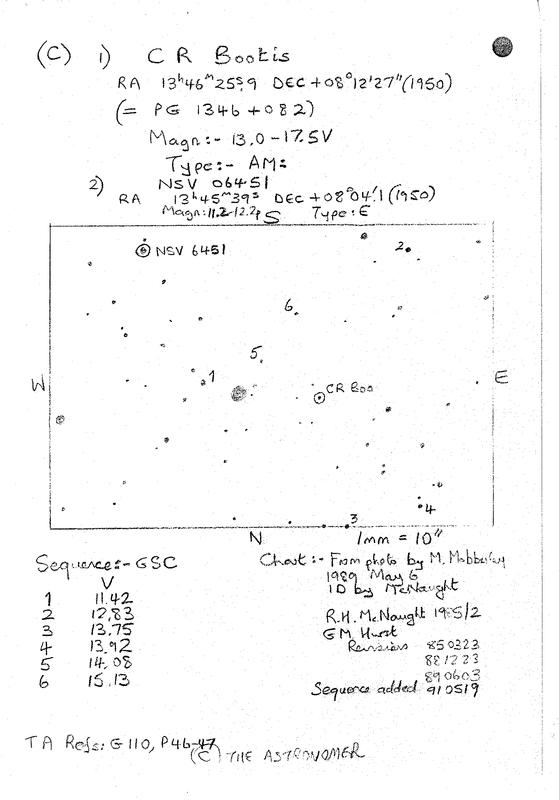 (C) 1) CR Bootis
RA 13h46m25s.9 DEC +08°12'27"(1950)
(= PG 1346+082)
Magn:- 13.0-17.5V
Type:- AM:
2) NSV 06451
RA 13h45m39s DEC +08°04'.1 (1950)
Magn:11.2-12.2p Type:E
S
NSV 6451
2
6
5
1
CR Boo
W
E
4
3
N
1mm = 10"
Sequence:- GSC
V
1 11.42
2 12.83
3 13.75
4 13.92
5 14.08
6 15.13
Chart:- From photo by M. Mobberley
1989 May 6
ID by McNaught
R.H. McNaught 1985/2
GM Hurst
Revisions 850323
881223
890603
Sequence added 910519
TA Refs: G110, P46-47
(C) THE ASTRONOMER